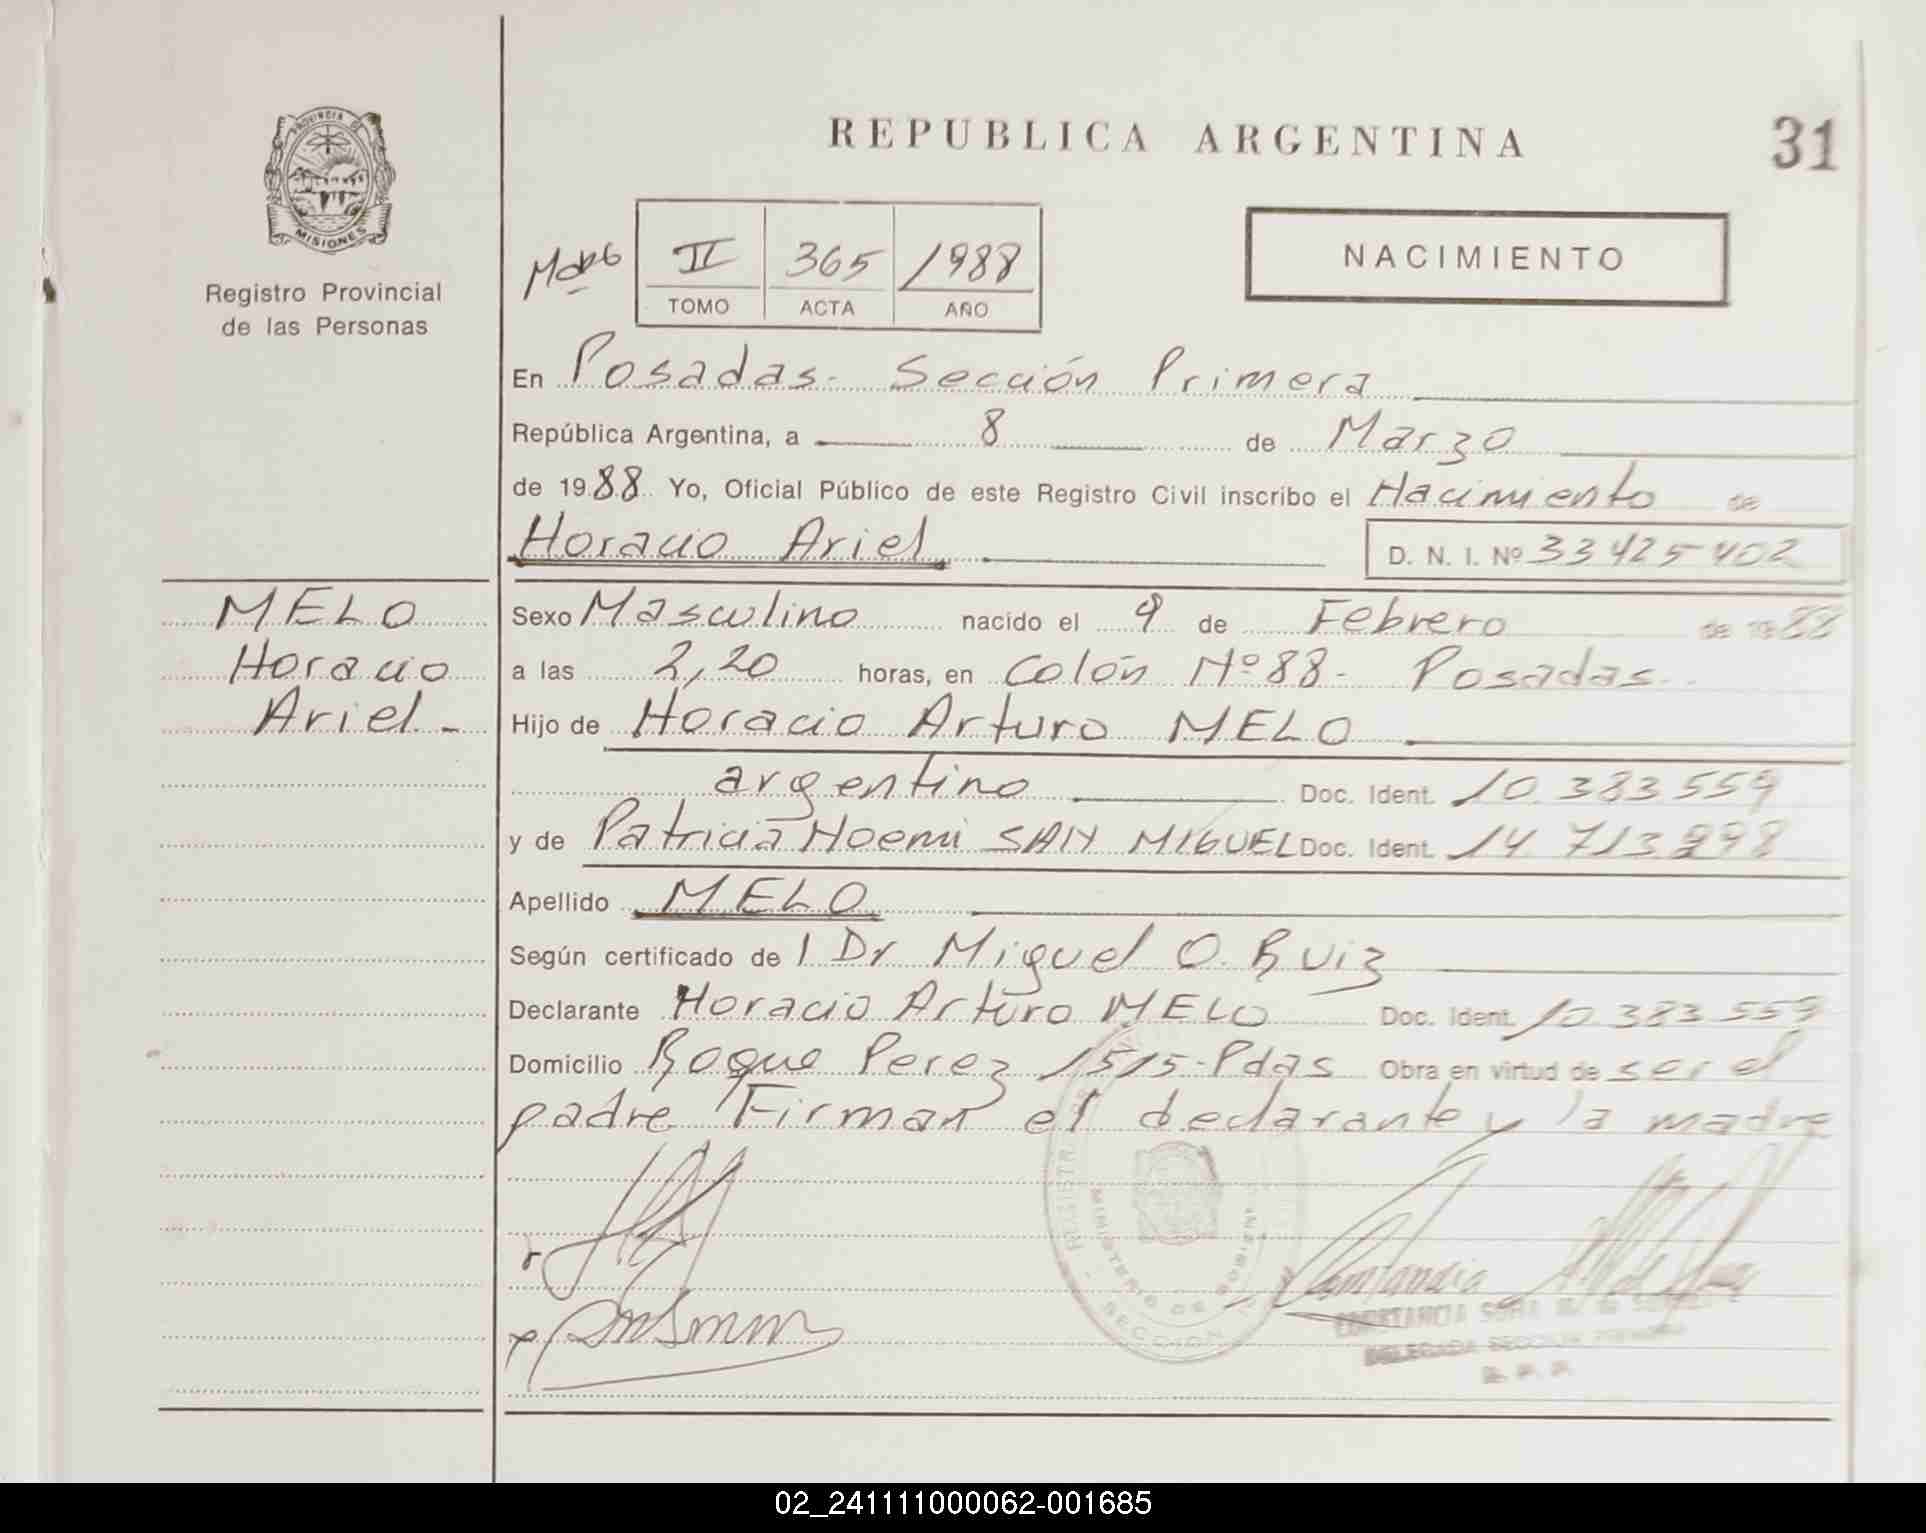 PROVINCIA DE
MISIONES
Registro Provincial
de las Personas
REPUBLICA ARGENTINA
31
II 365 1988
TOMO ACTA AÑO
NACIMIENTO
En Posadas- Sección Primera
República Argentina, a 8 de Marzo
de 1988 Yo, Oficial Público de este Registro Civil inscribo el Nacimiento de
Horacio Ariel D. N. I. Nº 33425402
MELO
Horacio
Ariel-
Sexo Masculino nacido el 9 de Febrero de 1988
a las 2,20 horas, en Colón Nº 88- Posadas
Hijo de Horacio Arturo MELO
argentino Doc. Ident. 10.383559
y de Patricia Noemi SAN MIGUEL Doc. Ident. 14 713998
Apellido MELO
Según certificado de l Dr Miguel O. Ruiz
Declarante Horacio Arturo MELO Doc. Ident. 10 383 559
Domicilio Roque Perez 1515-Pdas Obra en virtud de ser el
padre Firman el declarante y la madre
MINISTERIO DE GOBIERNO
SECCION
CONSTANCIA SOFIA
DELEGADA SECCION PRIMERA
R. P. P.
02_241111000062-001685